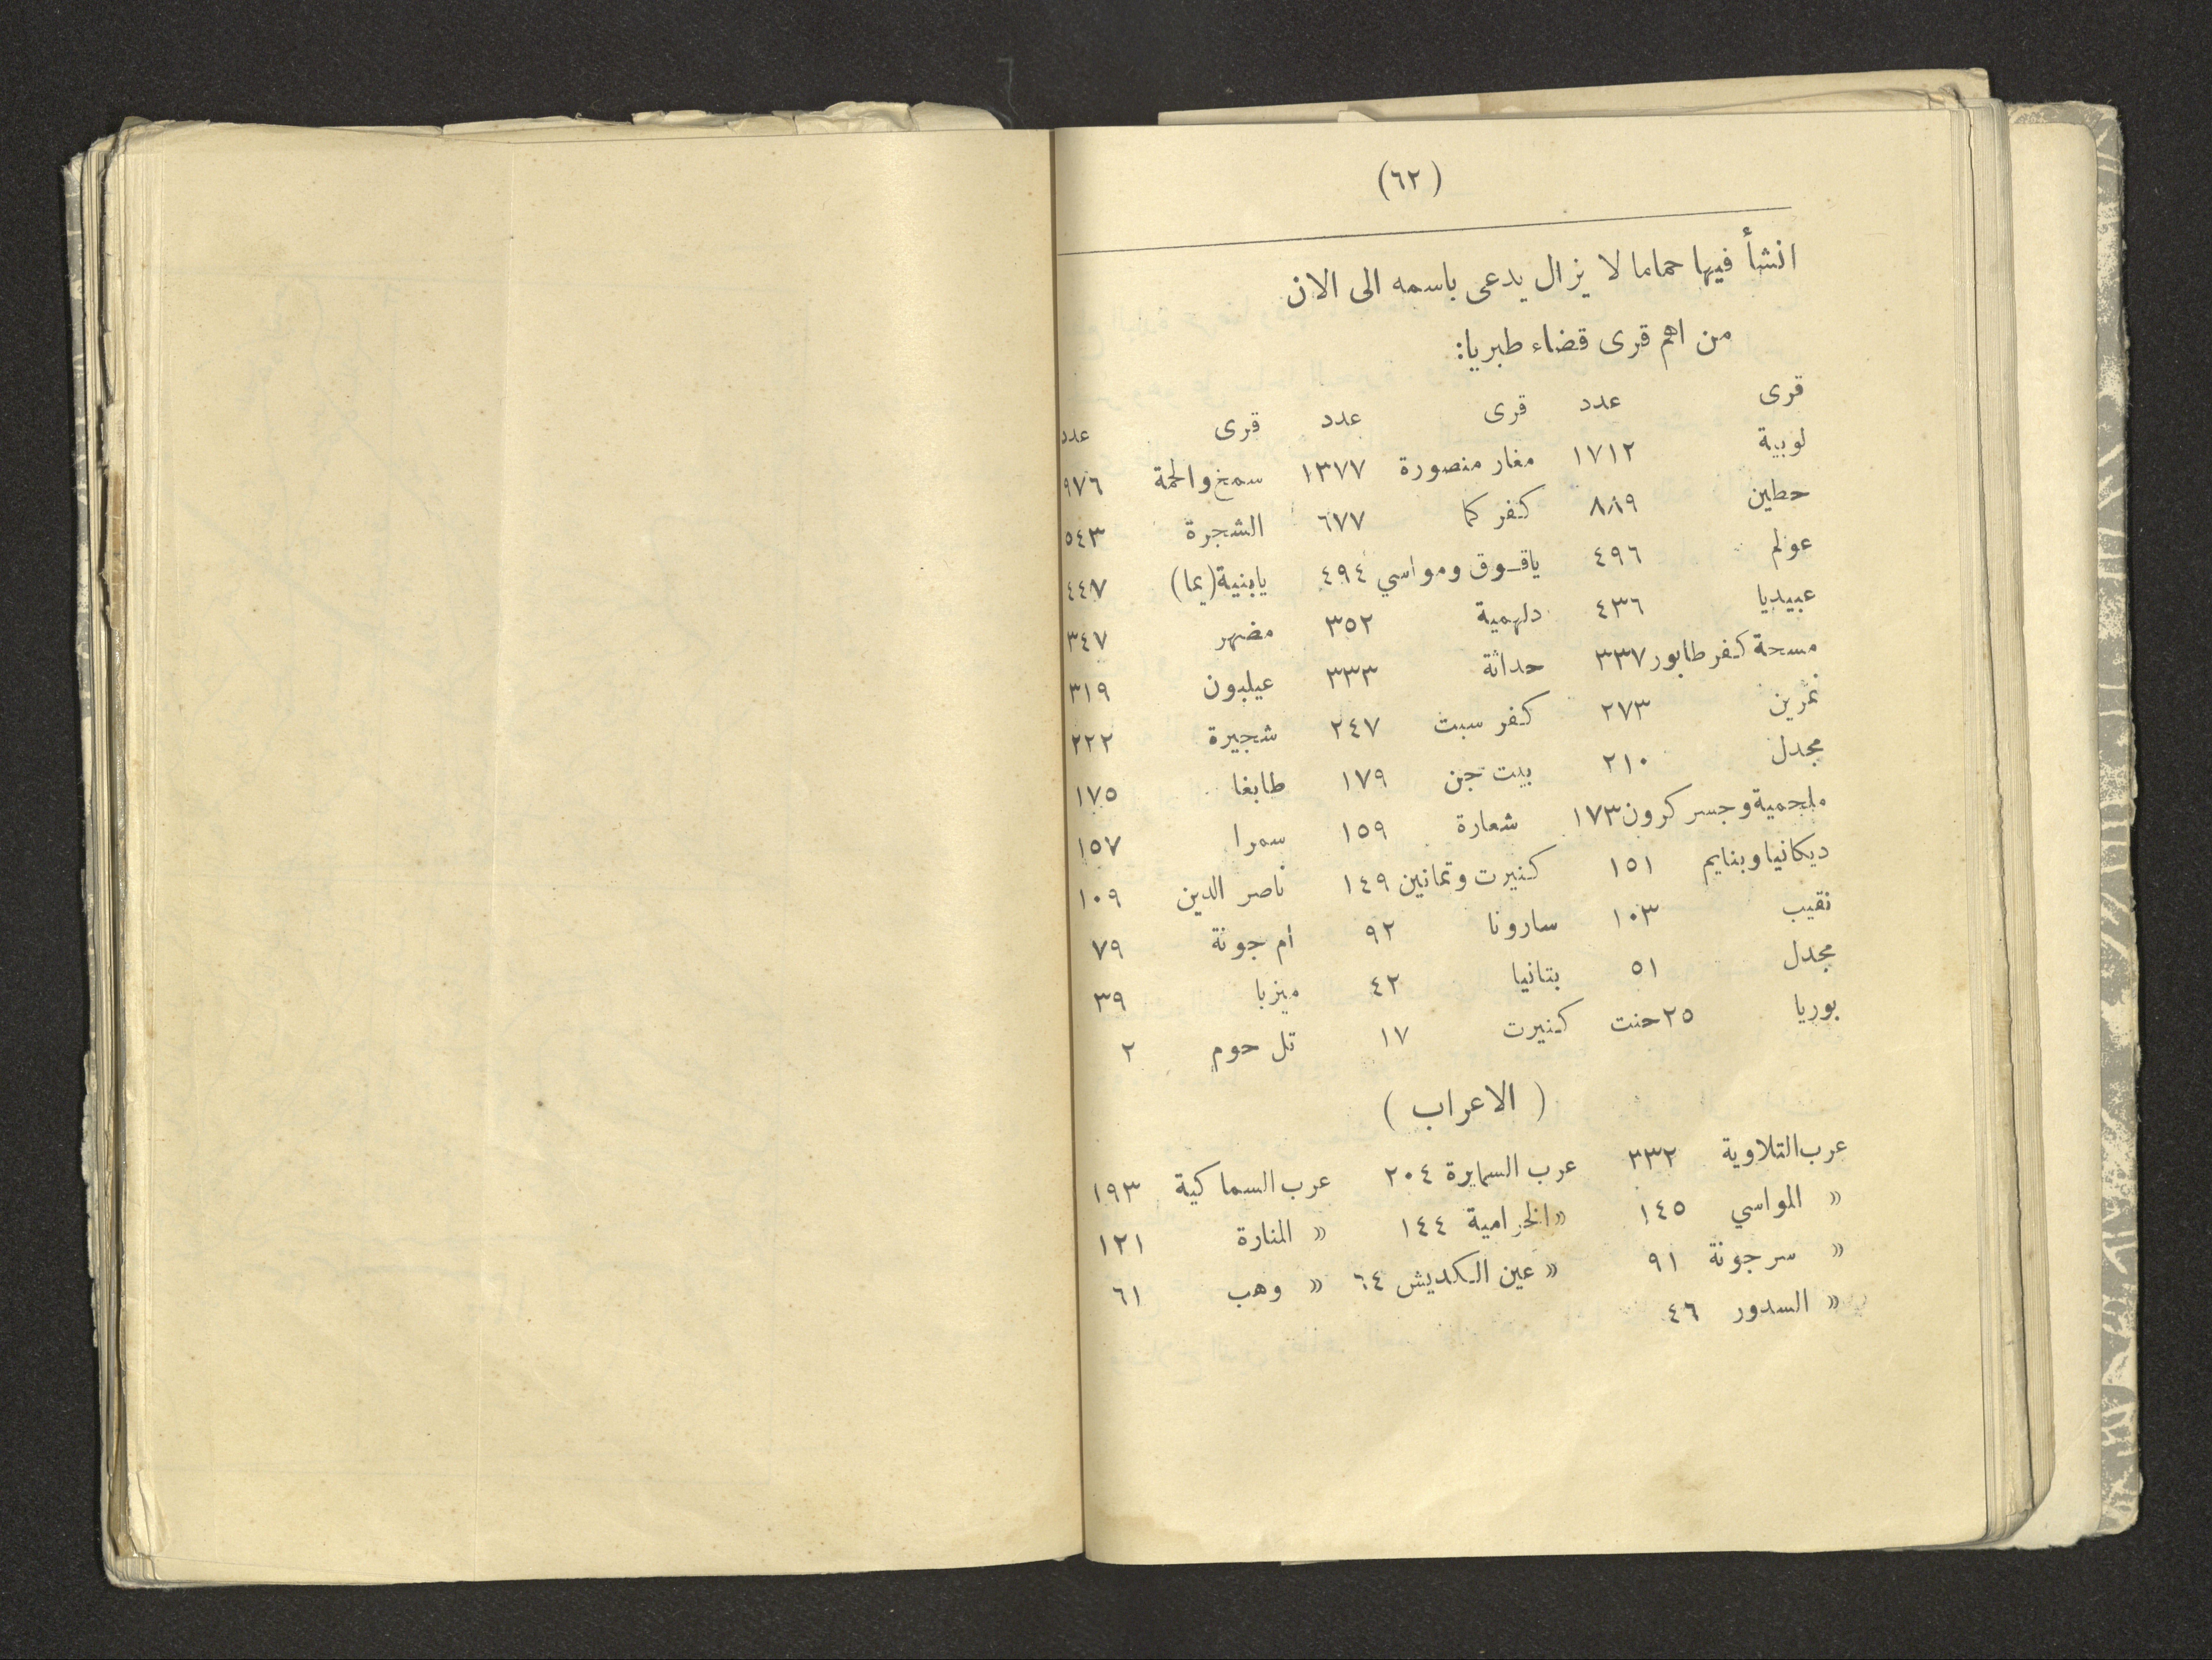 (٦٢)
انشأ فيها حماما لا يزال يدعى باسمه الى الان
من اهم قرى قضاء طبريا:
قرى عدد قرى عدد قرى عدد
لوبية ١٧١٢ مغار منصورة ١٣٧٧ سمخ والحمة ٩٧٦
حطين ٨٨٩ كفر كما ٦٧٧ الشجرة ٥٤٣
عولم ٤٩٦ ياقـوق ومواسي ٤٩٤ يابنية (يما) ٤٤٧
عبيديا ٤٣٦ دلهمية ٣٥٢ مضهر ٣٤٧
مسحة كفر طابور ٣٣٧ حداثة ٣٣٣ عيلبون ٣١٩
نمرين ٢٧٣ كفر سبت ٢٤٧ شجيرة ٢٢٢
مجدل ٢١٠ بيت جن ١٧٩ طابغا ١٧٥
ملجمية وجسر كرون ١٧٣ شعارة ١٥٩ سمرا ١٥٧
ديكانيا وبنايم ١٥١ كنيرت وتمانين ١٤٩ ناصر الدين ١٠٩
نقيب ١٠٣ سارونا ٩٢ ام جونة ٧٩
مجدل ٥١ بتانيا ٤٢ ميزبا ٣٩
بوريا ٢٥ حنت كنيرت ١٧ تل حوم ٢
( الاعراب )
عرب التلاوية ٣٣٢ عرب السمايرة ٢٠٤ عرب السماكية ١٩٣
« المواسي ١٤٥ « الخرامية ١٤٤ « المنارة ١٢١
« سرجونة ٩١ « عين الكديش ٦٤ « وهب ٦١
« السدور ٤٦